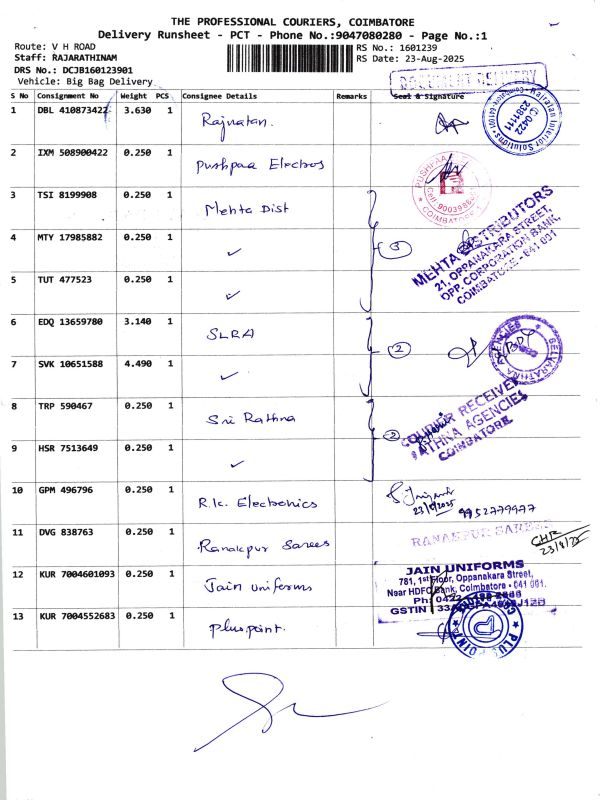 THE PROFESSIONAL COURIERS, COIMBATORE
Delivery Runsheet - PCT - Phone No.:9047080280 - Page No.:1
Route: V H ROAD
RS No.: 1601239
Staff: RAJARATHINAM
RS Date: 23-Aug-2025
DRS No.: DCJB160123901
Vehicle: Big Bag Delivery
DOCUMENT DELIVERY
S No Consignment No Weight PCS Consignee Details Remarks Seal & Signature
1 DBL 410873422 3.630 1 Rajratan.
Rajratan Interior Solutions
Coimbatore-641001
0422
2381111
2 IXM 508900422 0.250 1 Pushpaa Electros
PUSHPAA
COIMBATORE
3 TSI 8199908 0.250 1 Mehta Dist
4 MTY 17985882 0.250 1 ✓
3
MEHTA DISTRIBUTORS
21, OPPANAKARA STREET,
OPP. CORPORATION BANK,
COIMBATORE - 641 001
5 TUT 477523 0.250 1 ✓
6 EDQ 13659780 3.140 1 SLRA
2
AGENCIES
7 SVK 10651588 4.490 1 ✓
8 TRP 590467 0.250 1 Sri Rathna
2
COURIER RECEIVED
RATHNA AGENCIES
COIMBATORE
9 HSR 7513649 0.250 1 ✓
10 GPM 496796 0.250 1 R.k. Electronics
23/8/2025 9952779977
11 DVG 838763 0.250 1 Ranakpur Sarees
RANAKPUR SAREES
23/8/25
12 KUR 7004601093 0.250 1 Jain uniforms
JAIN UNIFORMS
781, 1st Floor, Oppanakara Street,
Near HDFC Bank, Coimbatore - 641 001.
Ph: 0422
GSTIN : 33A
13 KUR 7004552683 0.250 1 pluspoint.
PLUS POINT